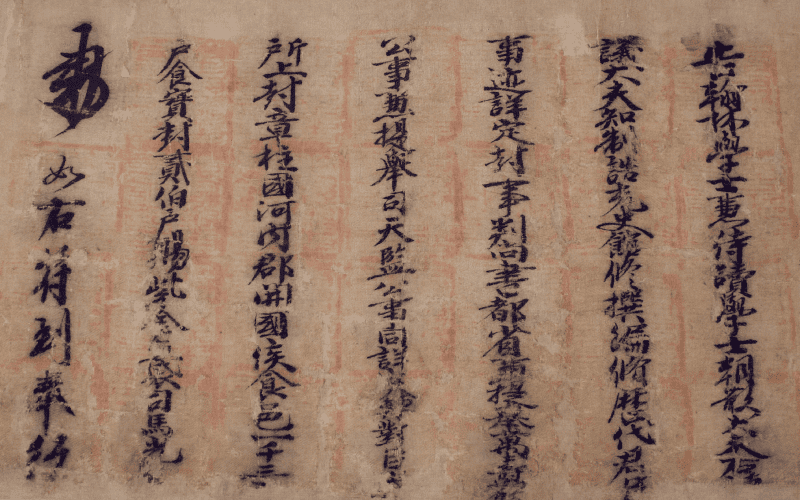 告翰林學士兼侍讀學士朝散大夫
議大夫知制誥充史館修撰編修歷代君臣
事迹詳定封事判尚書都省兼提舉萬壽
公事兼提舉司天監公事同詳定對
所上封章柱國河內郡開國侯食邑一千三
戶食實封貳伯戶賜紫金魚袋司馬光
勅
如右符到奉行